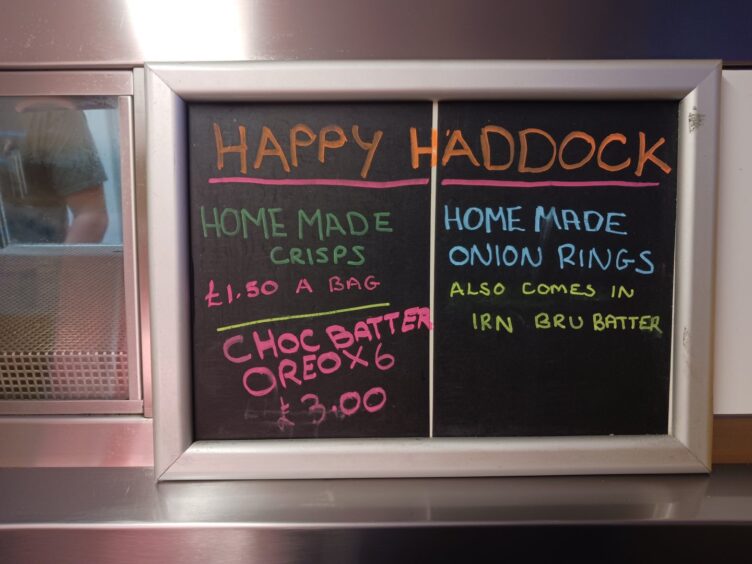 HAPPY HADDOCK
HOME MADE
CRISPS
£1.50 A BAG
CHOC BATTER
OREO X 6
£3.00
HOME MADE
ONION RINGS
ALSO COMES IN
IRN BRU BATTER